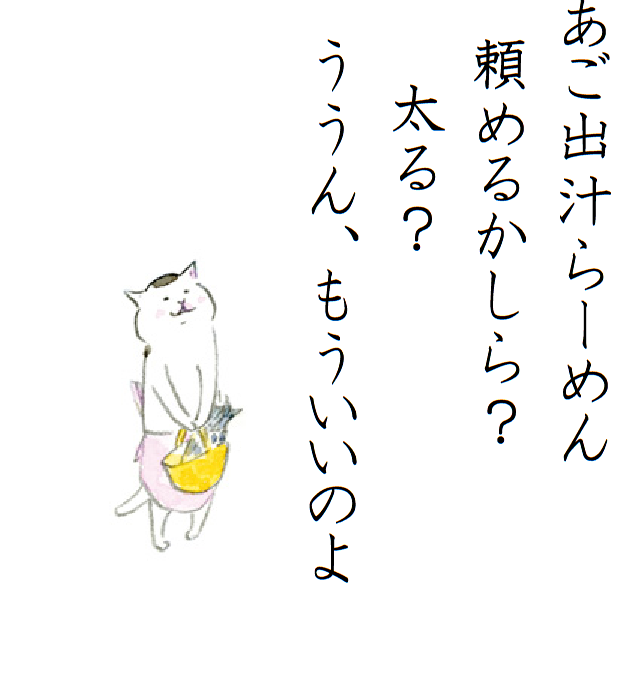 あご出汁らーめん
頼めるかしら？
太る？
ううん、もういいのよ